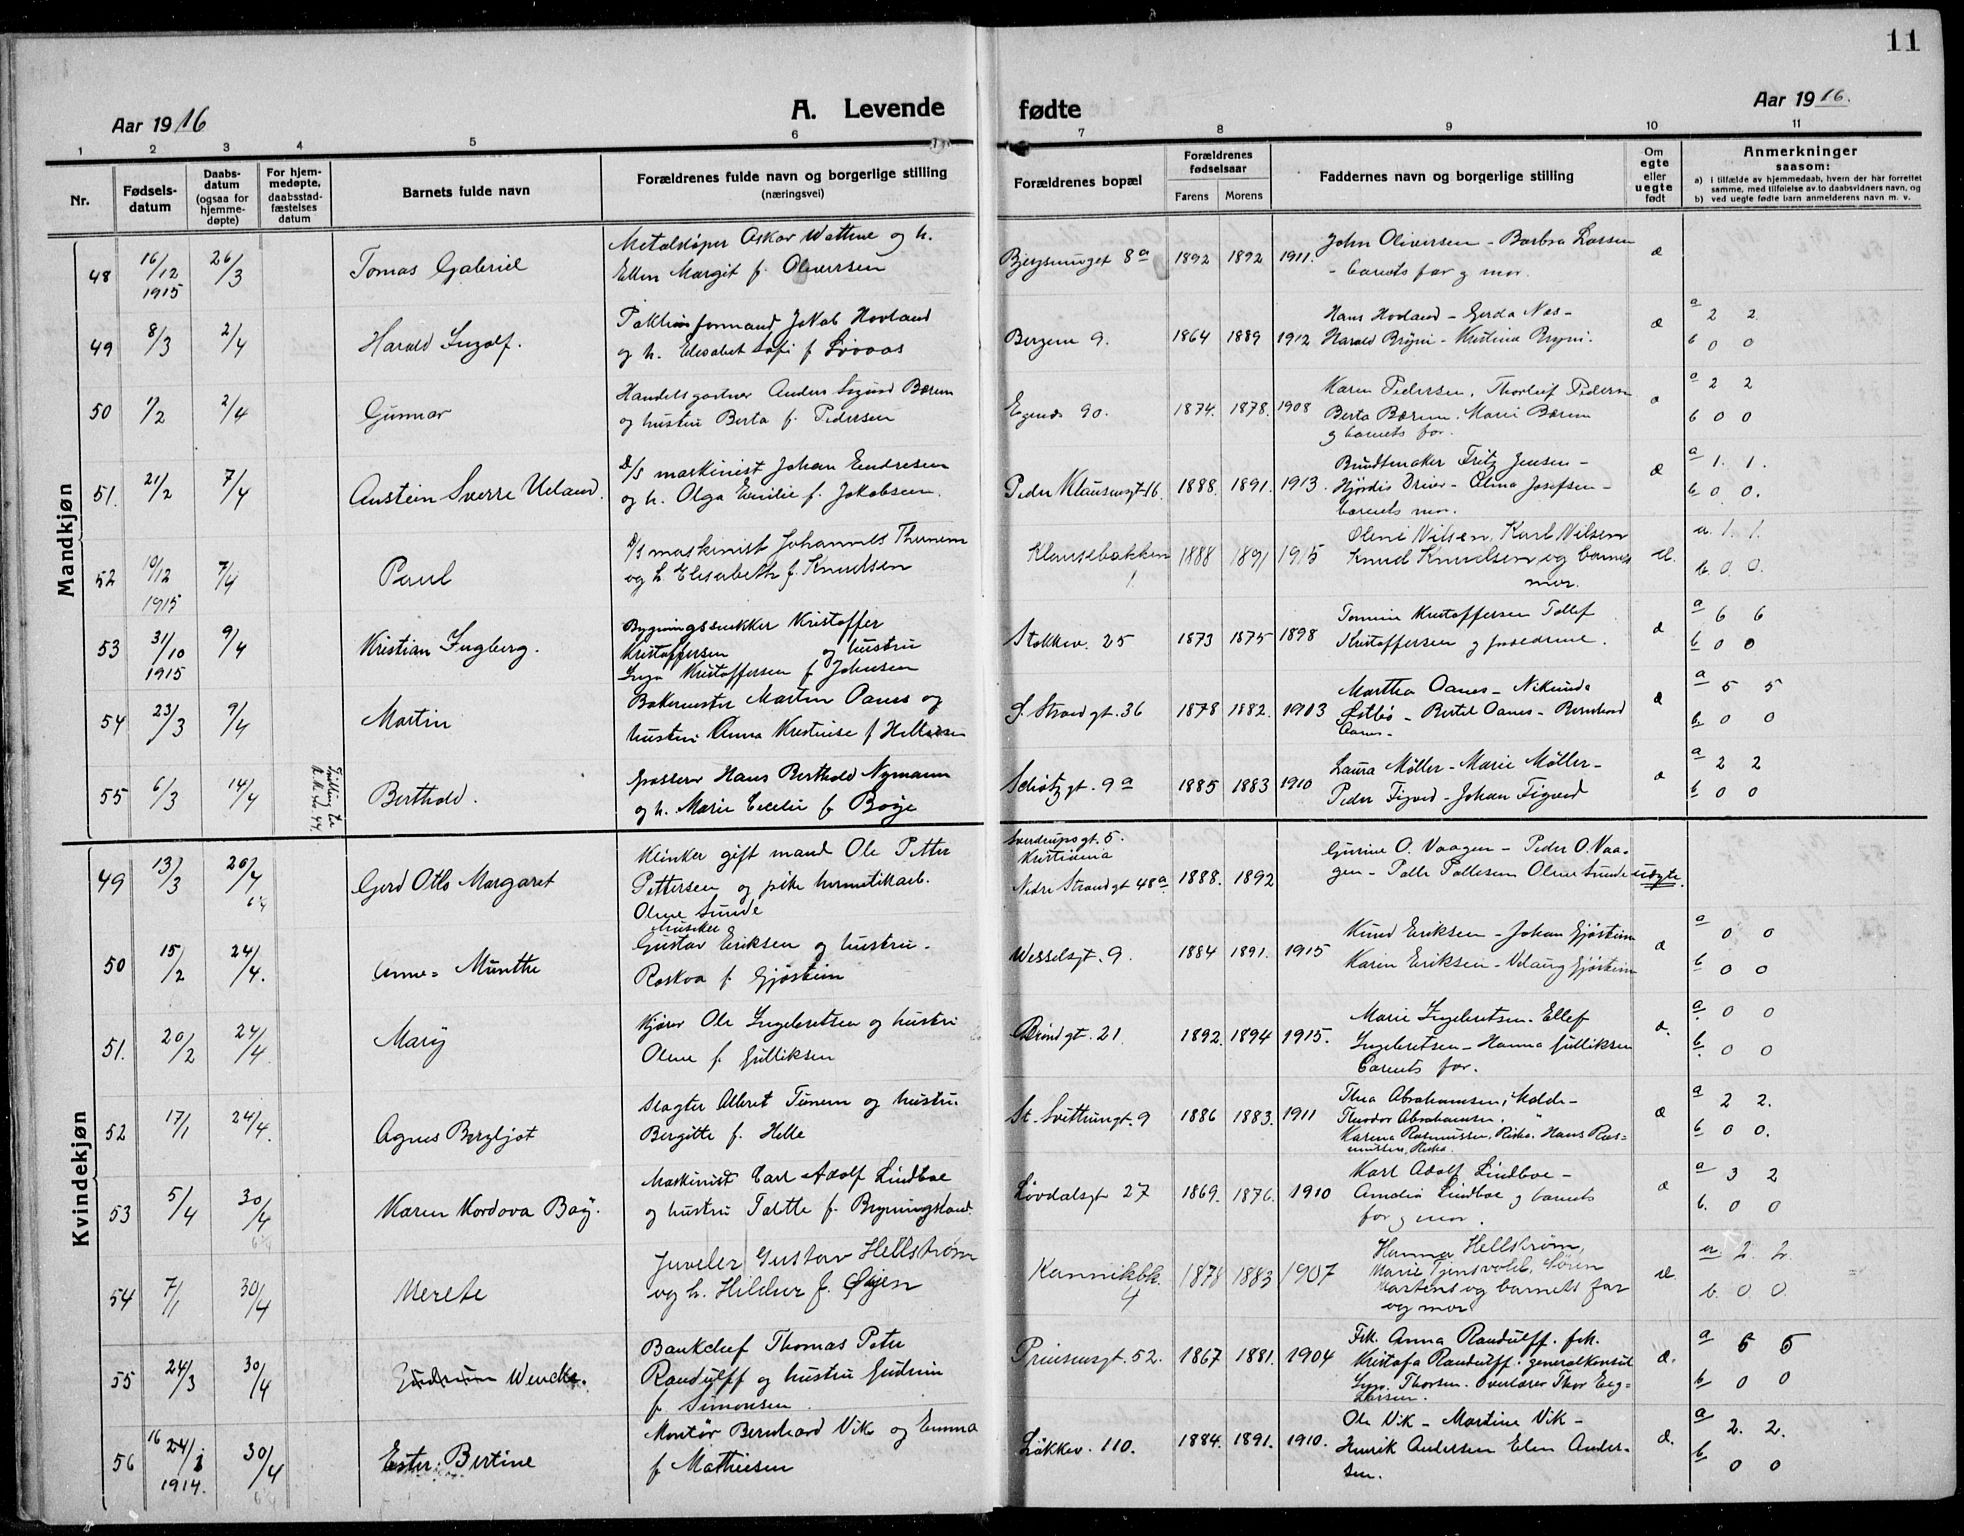 11
Aar 1916
A. Levende
fødte
Aar 1916.
1 2 3 4 5 6 7 8 9 10 11
Nr.
Fødsels-
datum
Daabs-
datum
(ogsaa for
hjemme-
døpte)
For hjem-
medøpte,
daabsstad-
fæstelses
datum
Barnets fulde navn
Forældrenes fulde navn og borgerlige stilling
(næringsvei)
Forældrenes bopæl
Forældrenes
fødselsaar
Farens Morens
Faddernes navn og borgerlige stilling
Om
egte
eller
uegte
født
Anmerkninger
saasom:
a) i tilfælde av hjemmedaab, hvem der har forrettet
samme, med tilføielse av to daabsvidners navn, og
b) ved uegte fødte barn anmelderens navn m. v.
Mandkjøn
48 16/12 1915 26/3 Tomas Gabriel
Metalstøper Oskar Wattne og h.
Ellen Margit f. Oliversen
Bjergsmuget 8a 1892 1892 1911.
John Oliversen - Barbra Larsen
- barnets far g mor. æ
49 8/3 2/4 Harald Ingolf.
formand Jakob Hovland
og h. Elisabet Sofi f Løvaas
Bergem 9. 1864 1889 1912
Hans Hovland - Gerda Næs -
Harald Bryni - Kristina Bryni. æ
a 2 2
b 0 0
50 1/2 2/4 Gunnar
Handelsgartner Anders Sigurd Bærem
og hustru Berta f. Pedersen
Egenes 90. 1874. 1878. 1908
Karen Pedersen, Thorleif Pedersen
Berta Bærem, Marie Bærem
g barnets far. æ
a 2 2
b 0 0
51. 21/2 7/4 Austein Sverre Ueland.
D/S maskinist Johan Endresen
og h. Olga Emilie f. Jakobsen.
Peder Klausensgt. 16. 1888. 1891. 1913.
Bundtmaker Fritz Jensen -
Hjørdis Driver - Olma Josefsen -
barnets mor. æ
a 1. 1.
b 0 0.
52 10/12 1915 7/4 Paul
D/S maskinist Johannes Thunem
og h. Elisabeth f. Knudsen
Klausebakken 1 1888 1891 1915
Oleni Nilsen, Karl Nilsen
Knud Knudsen, og barnets
mor. æ.
a. 1. 1.
b. 0. 0.
53 31/10 1915 9/4 Kristian Ingberg.
Bygningssnekker Kristoffer
Kristoffersen og hustru
Inga Kristoffersen f Johnsen
Stokkev. 25 1873 1875 1898
Tomine Kristoffersen Tollef
Kristoffersen g forældrene. æ
a 6 6
b 0 0
54 23/3 9/4 Martin
Bakermester Martin Oanes og
hustru Anna Kristine f Hellesen
S. Strandgt. 36 1878 1882. 1903
Martha Oanes - Nikunda
Østbø - Bertel Oanes - Bernhard
Oanes - æ
a 5 5
b 0 0
55 6/3 14/4 Berthold.
Grosserer Hans Berthold Nymann
og h. Marie Cecelie f. Bøge
Schiøtzgt. 9a 1885 1883 1910
Laura Møller - Marie Møller -
Peder Figved - Johan Figved æ
a 2 2
b 0 0
Kvindekjøn
49 13/3 20/4 Gerd Otls Margaret
Klinker gift mand Ole Petter
Pettersen og pike hermetikarb.
Olene Sunde
Sverdrupsgt. 5.
Kristiania
Nedre Strandgt 48a 1888. 1892
Gurine O. Vaagen - Peder O. Vaa-
gen - Palle Pallesen Olene Sunde uegte.
50 15/2 24/4. Anne = Munthe
Musiker
Gustav Eriksen og hustru -
Raskva f. Gjøstein
Wesselsgt. 9. 1884 1891. 1915
Knud Eriksen - Johan Gjøstein
Karin Eriksen - Velaug Gjøstein æ
a 0 0
b 0 0
51. 20/2 24/4 Mary
Kjører Ole Ingebretsen og hustru
Olene f. Gulliksen
Brøndgt. 21. 1892. 1894 1915.
Marie Ingebretsen. Ellef
Ingebretsen - Hanna Gulliksen
barnets far. æ.
a. 0 0
b. 0 0
52 17/1 24/4. Agnes Bergljot
Slagter Albret Tunem og hustru.
Bergitte f. Helle
St. Svithunsgt. 9 1886 1883. 1911
Thea Abrahamsen, Molde -
Theodor Abrahamsen, "
Karena Rasmussen, Riska. Hans Ras=
mussen, Riska. æ
a 2 2.
b 0 0.
53 5/4 30/4 Karen Kordova Boy.
Maskinist Carl Adolf Lindboe
og hustru Talette f. Brynningsland.
Løvdalsgt 27 1869. 1876. 1910
Karl Adolf Lindboe -
Amelia Lindboe g barnets
far g mor. æ
a 3 2
b. 0 0
54 7/1 30/4 Merete
Juveler Gustav Hellstrøm
og h. Hildur f. Øyen
Kannikbk. 4 1878 1883 1907
Hanna Hellstrøm,
Marie Tjensvold, Søren
Martens og barnets far
og mor æ.
a. 2. 2.
b. 0. 0.
55 24/3 30/4 Gudrun Wencke.
Bankchef Thomas Peter
Randulff og hustru Gudrun
f. Simonsen.
Prinsensgt. 52. 1867 1881. 1904
Frk. Anna Randulff. frk.
Kristofa Randulff. generalkonsul
Thorsen. Overlærer Thor Eeg=
Larsen. æ.
a 6 5
b 0 0
56 16 24/1 1914. 30/4 Ester Bertine
Montør Bernhard Vik og Emma
f. Mathiesen
Løkkev. 110. 1884. 1891. 1910.
Ole Vik - Martine Vik -
Henrik Andersen Elen Ander-
sen. æ.
a 2. 2.
b 0 0